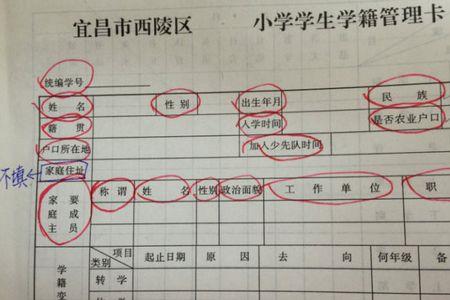 宜昌市西陵区 小学学生学籍管理卡
统编学号
姓名 性别 出生年月 民族
籍贯 入学时间 是否农业户口
户口所在地 加入少先队时间
不填← 家庭住址
家庭主要成员 称谓 姓名 性别 政治面貌 工作单位 职
项目 类别 起止日期 原因 去向 何年级 备
学籍变 转学